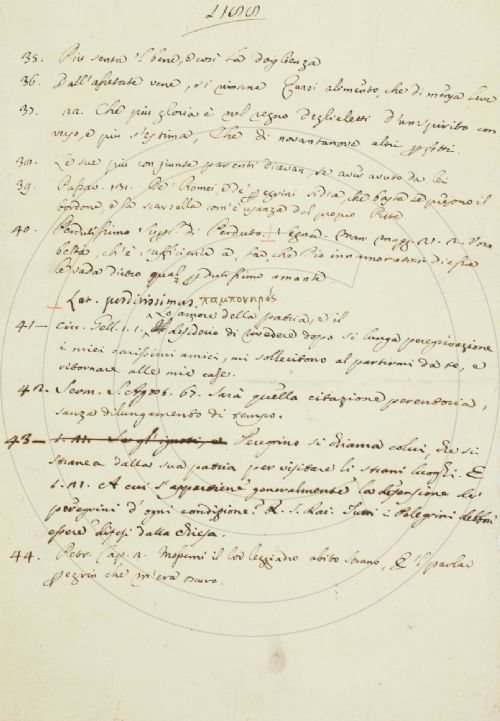 35. Più senta 'l bene, e così la doglienza
36. Dall'apetate vene, si rimane Quasi alimento, che di mensa leve
37. Che più gloria è nel regno degli eletti d'uno spirito con
verso, e più s'estima, Che di novantanove altri perfetti.
38. Le sue più congiunte parenti dicevan, se aver avuto da lei
39. Passav. 131. De' Romei e de' peregrini si dia, che basta se pigliono il
bordone e la scarsella com'è usanza del propio Prete
40. Perdutissimo Superl. di Perduto.
belta, ch'è sufficiente a far che più innamorator di essa
le vada dietro qual perdutissimo amante
Lat. perditissimus, παμπονηρός
Lo amore della patria, e il
41 – Circ. Gell. desiderio di rivedere dopo sì lunga peregrinazione
i miei carissimi amici, mi sollecitono al partirmi da te, e
ritornare alle mie case.
42. Serm. S. Agos. 67. Sarà quella citazione perentoria,
sanza dilungamento di tempo.
43 – Peregrino si chiama colui, che si
stranea dalla sua patria per visitare li strani luoghi. E
A cui s'appartiene generalmente la defensione de'
peregrini d'ogni condizione? R. Tutti i Pelegrini debbono
essere difesi dalla chiesa.
44. Petr. Cap. Mosenni il lor leggiadro abito strano, E 'l parlar
peregrin che m'era oscuro.